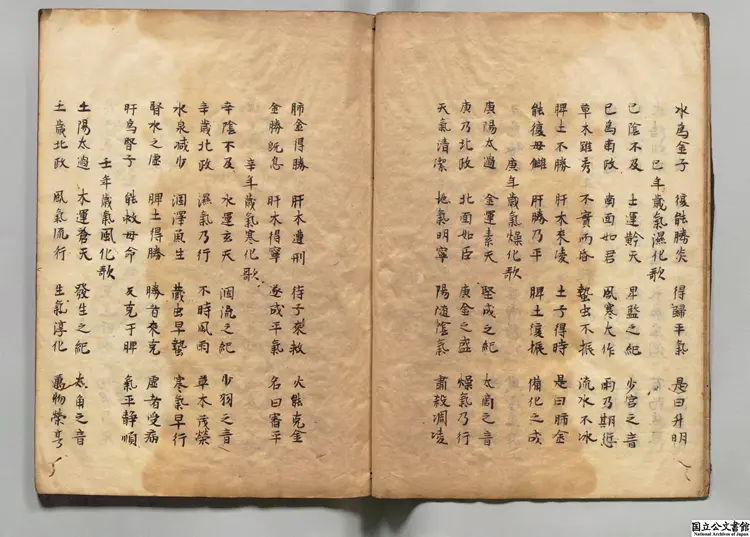 水為金子 復能勝炎 得歸平氣 是曰升明
己年歲氣濕化歌
己陰不及 土運黅天 卑監之紀 少宮之音
己為南政 南面如君 風寒大作 雨乃期愆
草木雖秀 不實而昏 蟄虫不振 流水不冰
脾土不勝 肝木來凌 土子得時 是曰肺金
能復母讎 肝勝乃平 脾土復振 備化之成
庚年歲氣燥化歌
庚陽太過 金運素天 堅成之紀 太商之音
庚乃北政 北面如臣 庚金之盛 燥氣乃行
天氣清潔 地氣明寧 陽隨陰氣 肅殺凋凌
肺金得勝 肝木遭刑 待子來救 火能克金
金勝既息 肝木得寧 遂成平氣 名曰審平
辛年歲氣寒化歌
辛陰不及 水運玄天 涸流之紀 少羽之音
辛歲北政 濕氣乃行 不時風雨 草木茂榮
水泉減少 涸澤魚生 蟄虫早蟄 寒氣早行
腎水之虛 脾土得勝 勝者來克 虛者受病
肝為腎子 能救母命 克于脾 氣平静順
壬年歲氣風化歌
土陽太過 木運蒼天 發生之紀 太角之音
土歲北政 風氣流行 生氣淳化 萬物榮
国立公文書館
National Archives of Japan